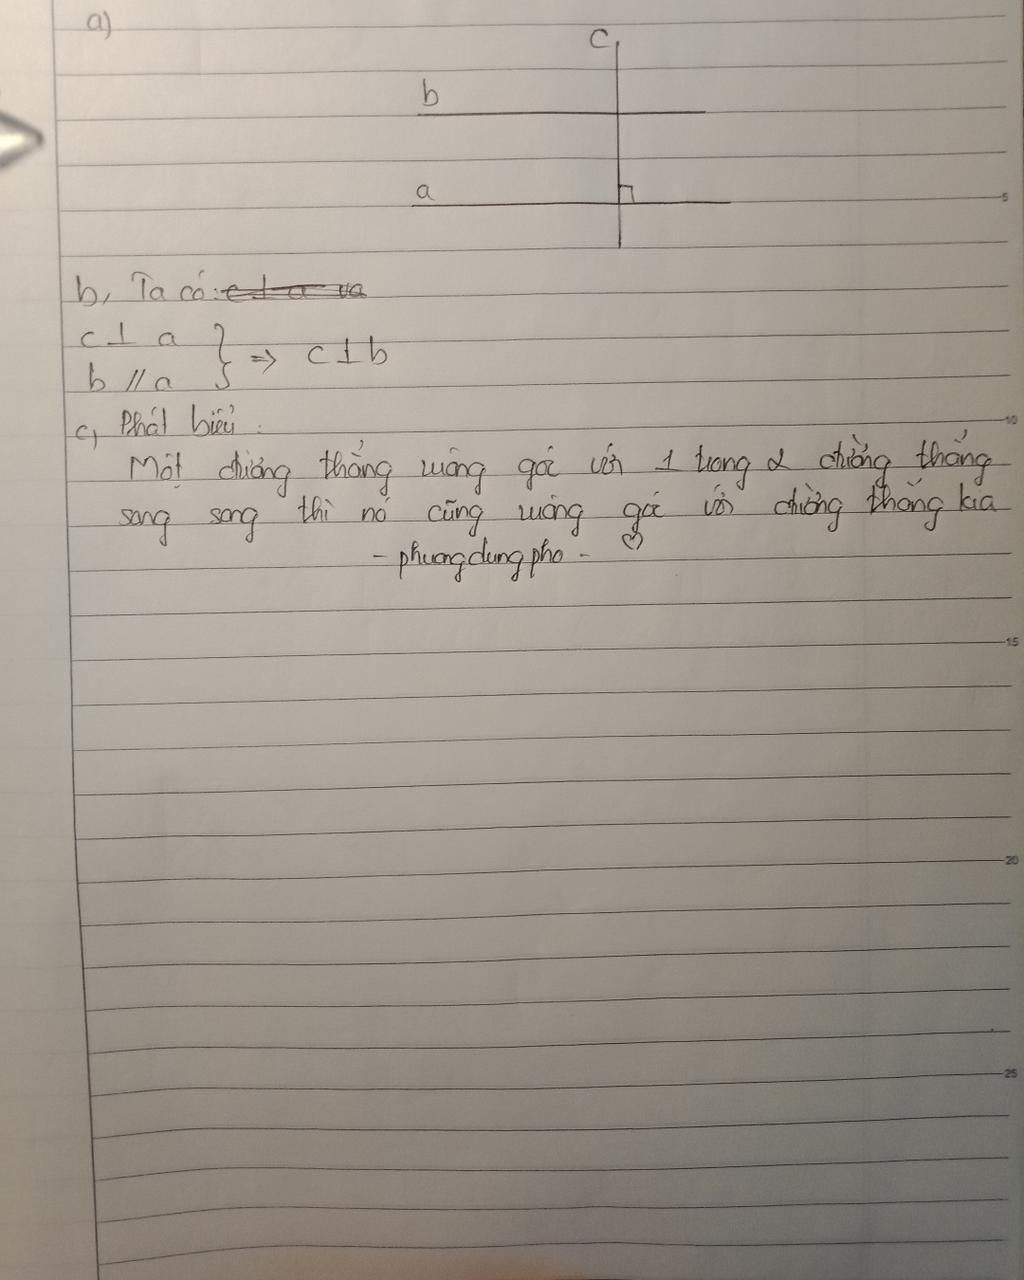 a)
c
b
a
5
b, Ta có: c ⊥ a và
c ⊥ a
b // a } => c ⊥ b
c, Phát biểu:
10
Một đường thẳng vuông góc với 1 trong 2 đường thẳng
song song thì nó cũng vuông góc với đường thẳng kia
- phuongdungpho - ♡
15
20
25